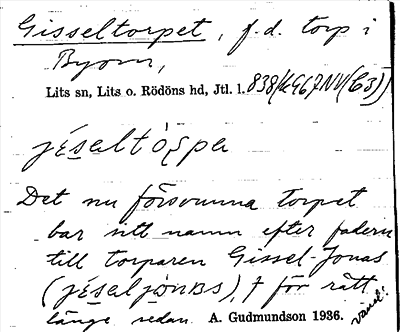 Gisseltorpet, f.d. torp i
Byom,
Lits sn, Lits o. Rödöns hd, Jtl. l. 838/k967NV(C3)
jéseltòṣpa
Det nu försvunna torpet
bar sitt namn efter fadern
till torparen Gissel-Jonas
(jéseljɷnɑs), † för rätt
länge sedan. A. Gudmundson 1936.